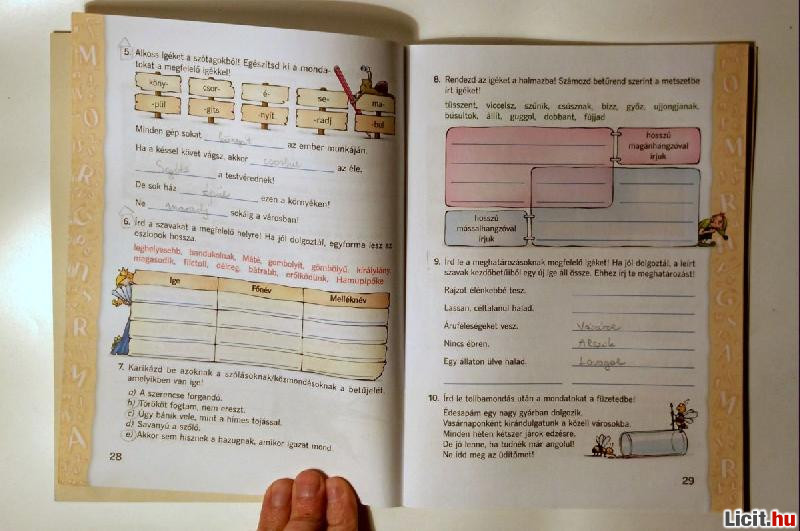 5. Alkoss igéket a szótagokból! Egészítsd ki a monda-
tokat a megfelelő igékkel!
köny- csor- é- se- ma-
-pül -gíts -nyít -radj -bul
Minden gép sokat könnyít az ember munkáján.
Ha a késsel követ vágsz, akkor csorbul az éle.
Segíts a testvérednek!
De sok ház épül ezen a környéken!
Ne maradj sokáig a városban!
6. Írd a szavakat a megfelelő helyre! Ha jól dolgoztál, egyforma lesz az
oszlopok hossza.
leghelyesebb, bandukolnak, Máté, gombolyít, gömbölyű, királylány,
magasodik, filctoll, délceg, bátrabb, erőlködünk, Hamupipőke
Ige Főnév Melléknév
7. Karikázd be azoknak a szólásoknak/közmondásoknak a betűjelét,
amelyikben van ige!
a) A szerencse forgandó.
b) Törököt fogtam, nem ereszt.
c) Úgy bánik vele, mint a hímes tojással.
d) Savanyú a szőlő.
e) Akkor sem hisznek a hazugnak, amikor igazat mond.
28
8. Rendezd az igéket a halmazba! Számozd betűrend szerint a metszetbe
írt igéket!
tüsszent, viccelsz, szűnik, csúsznak, bízz, győz, ujjongjanak,
búsultok, állít, guggol, dobbant, fújjad
hosszú
magánhangzóval
írjuk
hosszú
mássalhangzóval
írjuk
9. Írd le a meghatározásoknak megfelelő igéket! Ha jól dolgoztál, a leírt
szavak kezdőbetűiből egy új ige áll össze. Ehhez írj te meghatározást!
Rajzot élénkebbé tesz.
Lassan, céltalanul halad.
Áruféleségeket vesz. Vásárol
Nincs ébren. Alszik
Egy állaton ülve halad. Lovagol
10. Írd le tollbamondás után a mondatokat a füzetedbe!
Édesapám egy nagy gyárban dolgozik.
Vasárnaponként kirándulgatunk a közeli városokba.
Minden héten kétszer járok edzésre.
De jó lenne, ha tudnék már angolul!
Ne idd meg az üdítőmet!
29
Licit.hu